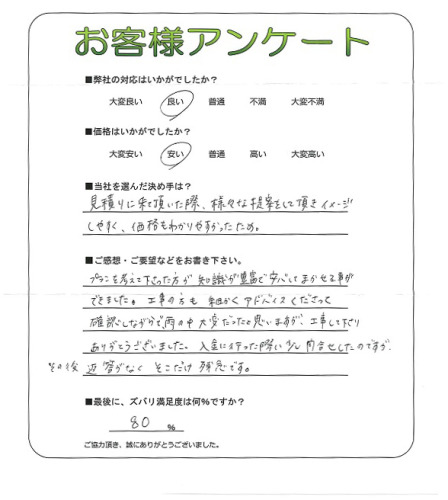 お客様アンケート
■弊社の対応はいかがでしたか?
大変良い 良い 普通 不満 大変不満
■価格はいかがでしたか?
大変安い 安い 普通 高い 大変高い
■当社を選んだ決め手は?
見積りに来て頂いた際、様々な提案をして頂きイメージ
しやすく、価格もわかりやすかったため。
■ご感想・ご要望などをお書き下さい。
プランを考えて下さった方が知識が豊富で安心してまかせる事が
できました。工事の方も細かくアドバイスくださって
確認しながらで、雨の中大変だったと思いますが、工事して下さり
ありがとうございました。入金に行った際い少し問合せしたのですが、
その後 返答がなく そこだけ残念です。
■最後に、ズバリ満足度は何%ですか?
80 %
ご協力頂き、誠にありがとうございました。